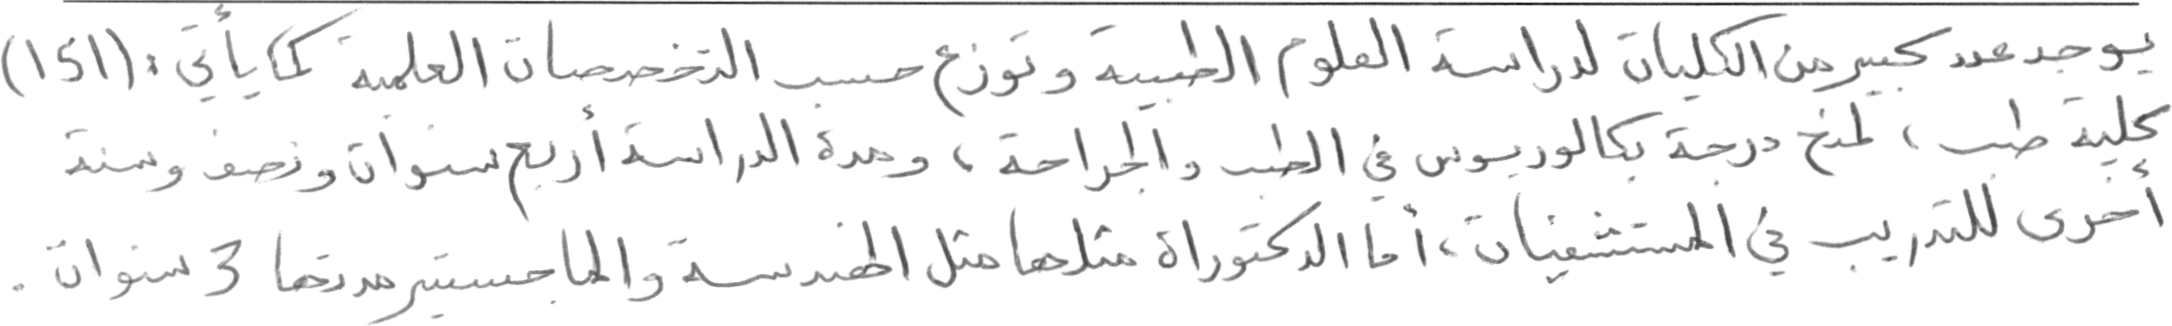 يوجد عدد كبير من الكليات لدراسة العلوم الطبية وتوزع حسب التخصصات العلمية كما يأتي: (151)
كلية طب، تمنح درجة بكالوريوس في الطب والجراحة، ومدة الدراسة أربع سنوات ونصف وسنة
أخرى للتدريب في المستشفيات، أما الدكتوراة مثلها مثل الهندسة والماجستير مدتها 3 سنوات.